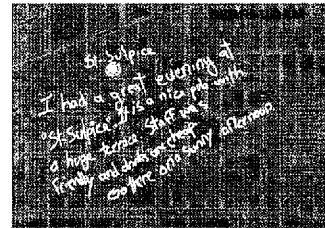 St-Sulpice
I had a great evening at
"St. Sulpice". It is a nice pub with
a huge terrace. Staff was
friendly and drinks are cheap
Go there on a sunny afternoon